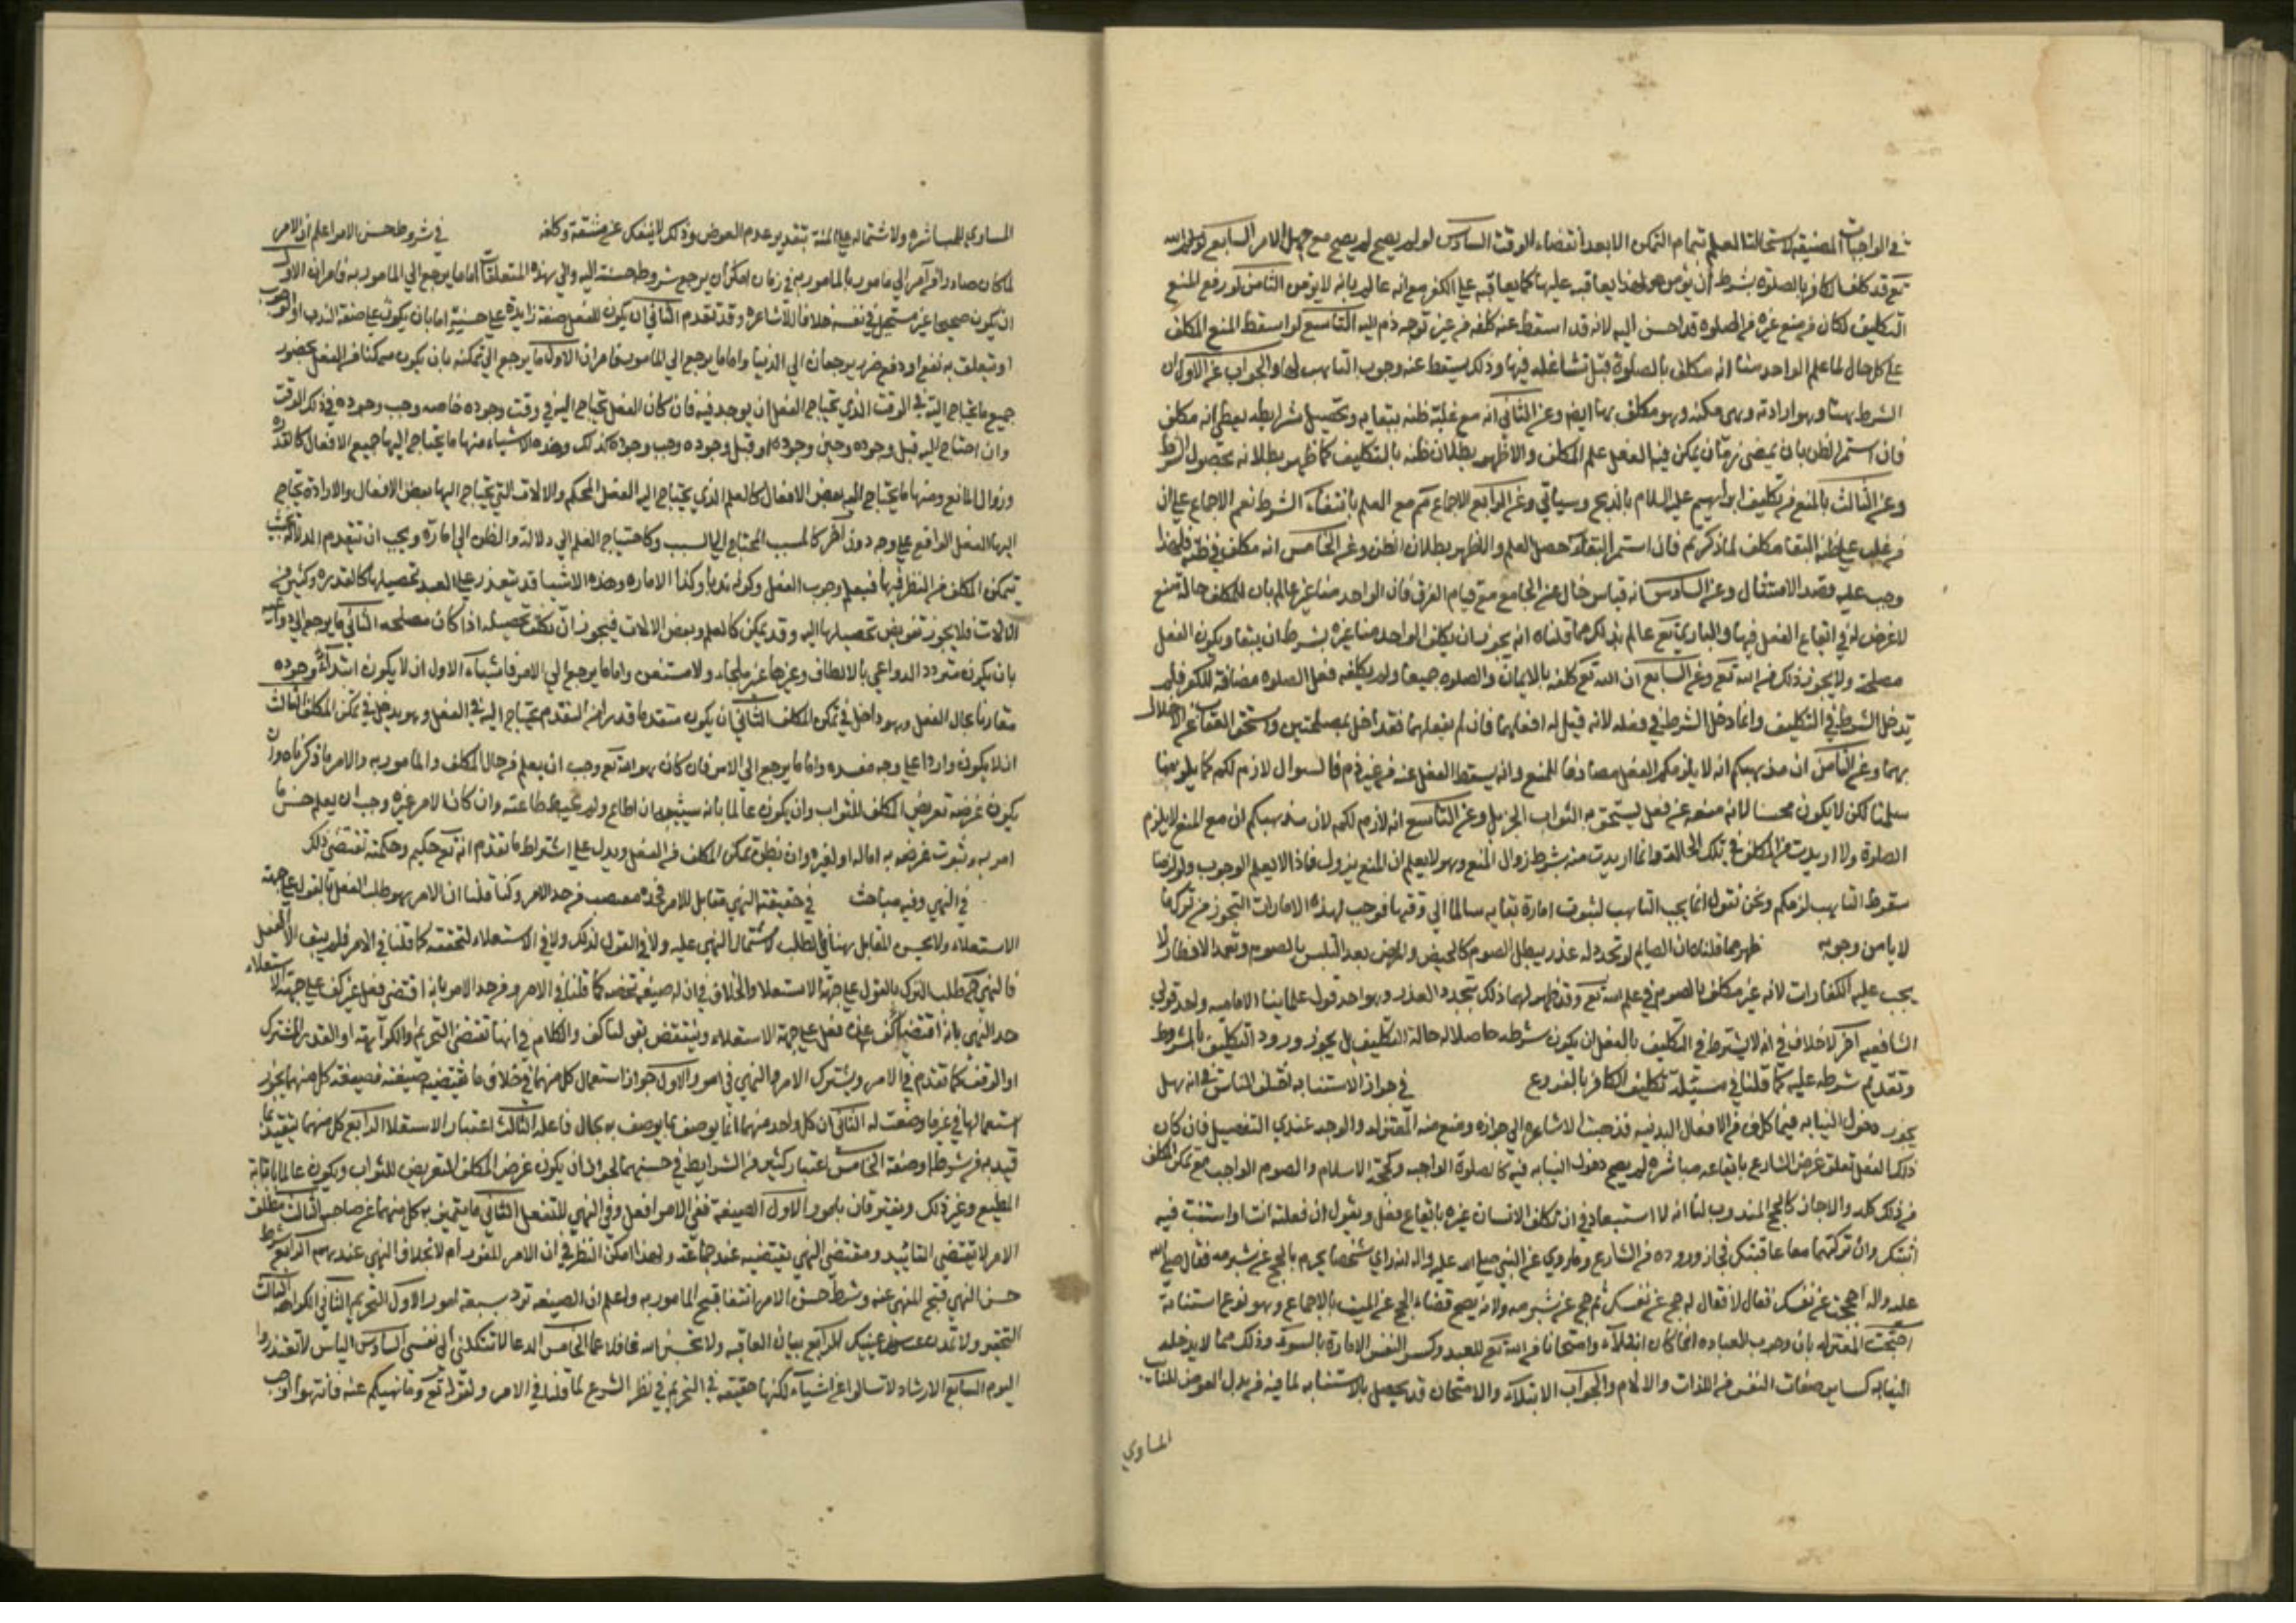 في الواجبات المضيقة لاستحالة العلم بتمام التمكن الا بعد انقضاء الوقت السادس لو لم يصح لم يصح مع جهل الامر السابع
تع قد كلف الكافر بالصلوة بشرط ان يؤمن ولهذا يعاقبه عليها كما يعاقبه على الكفر مع انه عالم بانه لا يؤمن الثامن لو رفع المنع
التكليف لكان من منع غيره من الصلوة قد احسن اليه لانه قد اسقط عنه كلفه من غير توجه ذم اليه التاسع لو اسقط المنع المكلف
على كل حال لما علم الواحد منا انه مكلف بالصلوة قبل تشاغله فيها وذلك يسقط عنه وجوب التاهب لها والجواب عن الاول ان
الشرط هنا وهو ارادته وهي ممكنه وهو مكلف بها ايض وعن الثاني انه مع غلبة ظنه ببقايه وتحصيل شرايطه يعلم انه مكلف
فان استمر الظن بان يمضي زمان يمكن فيه الفعل علم المكلف والا ظهر بطلان ظنه بالتكليف كما ظهر بطلانه بحصول الشرط
وعن الثالث بالمنع من تكليف ابراهيم عليه السلام بالذبح وسياتي وعن الرابع الاجماع تم مع العلم بانتفاء الشرط نعم الاجماع على ان
من غلب على ظنه البقا مكلف لما ذكرتم فان استمر البقاء حصل العلم والا ظهر بطلان الظن وعن الخامس انه مكلف في ظنه فلهذا
وجب عليه قصد الامتثال وعن السادس انه قياس خال عن الجامع مع قيام الفرق فان الواحد منا غير عالم بان للمكلف حالة تمنع
لا غرض له في ايقاع الفعل فيها والباري تع عالم بذلك مما قلناه انه يجوز ان يكلف الواحد منا غيره بشرط ان يبقا ويكون الفعل
مصلحة ولا يجوز ذلك من الله تع وعن السابع ان الله تع كلفه بالايمان والصلوه جميعا ولم يكلفه فعل الصلوه مضافة للكفر فلم
يدخل الشرط في التكليف وانما دخل الشرط في فعله لانه قيل له افعلهما فان لم يفعلهما فقد اخل بمصلحتين واستحق العقاب على الاخلال
بهما وعن الثامن ان مذهبكم انه لا يلزمكم الفعل مصادفا للمنع وانه يسقط الفعل عنه من غير ذم فالسوال لازم لكم كما يلزمنا
سلمنا لكن لا يكون محسنا لانه منعه عن فعل يستحق به الثواب الجزيل وعن التاسع انه لازم لكم لان مذهبكم ان مع المنع لا يلزم
الصلوة ولا اريدت من المكلف في تلك الحالة وانما اريدت منه بشرط زوال المنع وهو لا يعلم ان المنع يزول فاذا لا يعلم الوجوب ولو لزمنا
سقوط التاهب لزمكم ونحن نقول انما يجب التاهب لثبوت امارة بقايه سالما الى وقتها فوجب لهذه الامارات التحرز من ترك ما
لا يامن وجوبه ظهر مما قلناه ان الصايم لو تجدد له عذر يبطل الصوم كالحيض والمرض بعد التلبس بالصوم وتعمد الافطار لا
يجب عليه الكفارات لانه غير مكلف بالصوم في علم الله تع وقد ظهر لهما ذلك بتجدد العذر وهو احد قولي علمائنا الاماميه واحد قولي
الشافعيه اخر لا خلاف في انه لا يشترط في التكليف بالفعل ان يكون شرطه حاصلا له حالة التكليف بل يجوز ورود التكليف بالمشروط
وتقديم شرطه عليه كما قلنا في مسئلة تكليف الكافر بالفروع في جواز الاستنابه اختلف الناس في انه هل
يجوز دخول النيابه فيما كلف من الافعال البدنيه فذهبت الاشاعره الى جوازه ومنع منه المعتزله والوجه عندي التفصيل فان كان
ذلك الفعل تعلق غرض الشارع بايقاعه مباشره لم يصح دخول النيابه فيه كالصلوة الواجبه وكحجة الاسلام والصوم الواجب مع تمكن المكلف
من ذلك كله والا جاز كالحج المندوب لنا انه لا استبعاد في ان يكلف الانسان غيره بايقاع فعل ويقول ان فعلته انت او استنبت فيه
اثبتك وان تركتهما معا عاقبتك فجاز وروده من الشارع وما روي عن النبي صلى الله عليه واله انه راي شخصا يحرم بالحج عن شبرمه فقال صلى الله
عليه واله احججت عن نفسك فقال لا فقال له حج عن نفسك ثم حج عن شبرمه ولانه يصح قضاء الحج عن الميت بالاجماع وهو نوع استنابة
احتجت المعتزله بان وجوب العباده انما كان ابتلاء وامتحانا من الله تع للعبد وكسر النفس الامارة بالسوء وذلك مما لا يدخله
النيابه كساير صفات النفس من اللذات والالام والجواب الابتلاء والامتحان قد يحصل بالاستنابه لما فيه من بذل العوض للنائب
المساوي
المساوي للمباشره ولاشتماله على المنة بتقدير عدم العوض وذلك لا ينفك عن مشقة وكلفه في شروط حسن الامر اعلم ان الامر
لما كان صادرا من آمر الى مامور بالمامور به في زمان امكن ان يرجع شروط حسنه اليه والى هذه المتعلقات اما ما يرجع الى المامور به فامران الاول
ان يكون صحيحا غير مستحيل في نفسه خلافا للاشاعره وقد تقدم الثاني ان يكون للفعل صفة زايدة على حسنه اما بان يكون على صفة الندب او الوجوب
او يتعلق به نفع او دفع ضرر يرجعان الى الدنيا واما ما يرجع الى المامور فامران الاول ما يرجع الى تمكنه بان يكون متمكنا من الفعل بحضور
جميع ما يحتاج اليه في الوقت الذي يحتاج الفعل ان يوجد فيه فان كان الفعل يحتاج اليه في وقت وجوده خاصه وجب وجوده في ذلك الوقت
وان احتاج اليه قبل وجوده وحين وجوده او قبل وجوده وجب وجوده كذلك وهذه الاشياء منها ما يحتاج اليها جميع الافعال كالقدره
وزوال المانع ومنها ما يحتاج اليه بعض الافعال كالعلم الذي يحتاج اليه الفعل المحكم والالات التي يحتاج اليها بعض الافعال والارادة يحتاج
اليها الفعل الواقع على وجه دون اخر كالمسبب المحتاج الى السبب وكاحتياج العلم الى دلالة والظن الى امارة ويجب ان تتقدم الدلالة بحيث
يتمكن المكلف من النظر فيها فيعلم وجوب الفعل وكونه ندبا وكذا الاماره وهذه الاشيا قد يتعذر على العبد تحصيلها كالقدره وكثير من
الالات فلا يجوز تفويض تحصيلها اليه وقد يمكن كالعلم وبعض الالات فيجوز ان يكلف تحصيله اذا كان مصلحه الثاني ما يرجع الى دواعيه
بان يكون متردد الدواعي بالالطاف وغيرها غير ملجاء ولا مستغن واما ما يرجع الى الامر فاشياء الاول ان لا يكون ابتداء وجوده
مقارنا بحال الفعل وهو داخل في تمكن المكلف الثاني ان يكون متقدما قدرا من التقدم يحتاج اليه في الفعل وهو يدخل في تمكن المكلف الثالث
ان لا يكون واردا على وجه مفسده واما ما يرجع الى الامر فان كان هو الله تع وجب ان يعلم من حال المكلف والمامور به والامر ما ذكرناه وان
يكون غرضه تعريض المكلف للثواب وان يكون عالما بانه سيثيبه ان اطاع ولم يحبط طاعته وان كان الامر غيره وجب ان يعلم حسن ما
امر به وثبوت غرض به اما له او لغيره وان يظن تمكن المكلف من الفعل ويدل على اشتراط ما تقدم انه تع حكيم وحكمته تقتضي ذلك
في النهي وفيه مباحث في حقيقته النهي مقابل للامر فحده مقتضب من حد الامر وكنا قلنا ان الامر هو طلب الفعل بالقول على جهة
الاستعلاء ولا يحسن المقابل هنا في الطلب لاشتمال النهي عليه ولا في القول لذلك ولا في الاستعلاء لتحققه كما قلنا في الامر فلم يبق الا الفعل
فالنهي طلب الترك بالقول على جهة الاستعلا والخلاف في ان له صيغة تخصه كما قلنا في الامر ومن حد الامر بانه اقتضى فعل غير كف على جهة الاستعلاء
حد النهي بانه اقتضى كف عن فعل على جهة الاستعلاء وينتقض بقولنا كف والكلام في انها تقتضي التحريم والكراهة او القدر المشترك
او الوقف كما تقدم في الامر ويشترك الامر والنهي في امور الاول جواز استعمال كل منهما في خلاف ما يقتضيه صيغته فصيغة كل منهما يجوز
استعمالها في غير ما وضعت له الثاني ان كل واحد منهما انما يوصف بما يوصف به بحال فاعله الثالث اعتبار الاستعلا الرابع كل منهما يتقيد بما
قيد به من شرط او صفة الخامس اعتبار كثير من الشرايط في حسنهما نحو ان يكون غرض المكلف التعريض للثواب ويكون عالما باثابة
المطيع وغير ذلك ويفترقان بامور الاول الصيغه ففي الامر افعل وفي النهي لا تفعل الثاني ما يتميز به كل منهما عن صاحبه الثالث مطلق
الامر لا يقتضي التابيد ومقتضى النهي يقتضيه عند جماعة ولهذا امكن النظر في ان الامر للفور ام لا بخلاف النهي عندهم الرابع شرط
حسن النهي قبح المنهي عنه وشرط حسن الامر انتفا قبح المامور به واعلم ان الصيغه ترد بسبعة امور الاول التحريم الثاني الكراهه الثالث
التحقير ولا تمدن عينيك الرابع بيان العاقبه ولا تحسبن الله غافلا عما الخامس الدعا لا تكلني الى نفسي السادس الياس لا تعتذروا
اليوم السابع الارشاد لا تسالوا عن اشياء لكنها حقيقه في التحريم في نظر الشرع لما قلنا في الامر ولقوله تع وما نهيكم عنه فانتهوا اوجب